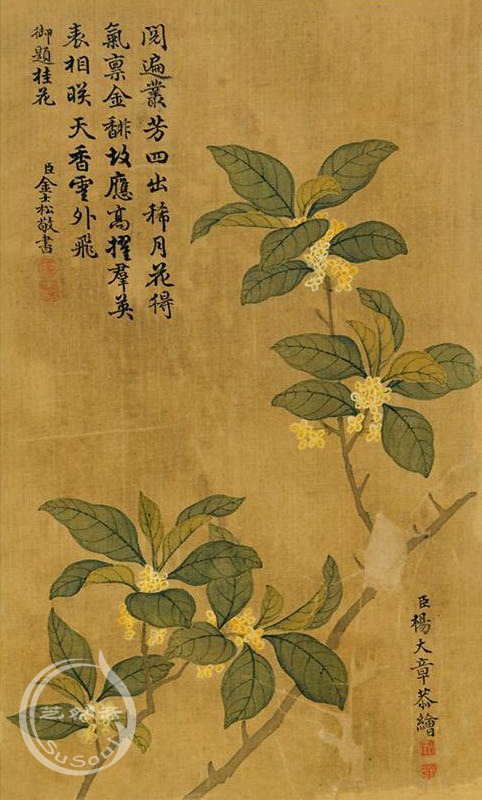 閱遍叢芳四出稀月花得
氣稟金馡故應高擢羣英
表相映天香雲外飛
御題桂花
臣金士松敬書
臣楊大章恭繪
SuSouu